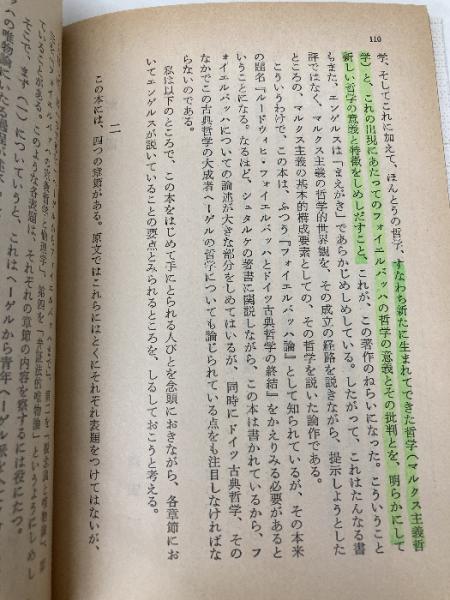 110
学、そしてこれに加えて、ほんとうの哲学、すなわち新たに生まれてできた哲学（マルクス主義哲
学）と、これの出現にあたってのフォイエルバッハの哲学の意義とその批判とを、明らかにして
新しい哲学の意義と特徴をしめしだすこと、これが、この著作のねらいになった。こういうこと
もまた、エンゲルスは「まえがき」であらかじめしめしている。したがって、これはたんなる書
評ではなく、マルクス主義の哲学的世界観を、その成立の経路を説きながら、提示しようとした
ところの、マルクス主義の基本的構成要素としての、その哲学を説いた論作である。
こういうわけで、この本は、ふつう『フォイエルバッハ論』として知られているが、その本来
の題名『ルードウィヒ・フォイエルバッハとドイツ古典哲学の終結』をかえりみる必要があると
いうことになる。なるほど、シュタルケの著書に関説しながら、この本は書かれているから、フ
ォイエルバッハについての論述が大きな部分をしめてはいるが、同時にドイツ古典哲学、その
なかでこの古典哲学の大成者ヘーゲルの哲学についても論じられている点をも注目しなければな
らないのである。
私は以下のところで、この本をはじめて手にとられる人びとを念頭におきながら、各章節にお
いてエンゲルスが説いていることの要点とみられるところを、しるしておこうと考える。
二
この本には、四つの章節がある。原文ではこれらにはとくにそれぞれ表題をつけてはないが、
ていることがある。このような各表題は、それぞれの章節の内容を察するには役にたつ。
そこで、まず（一）についていうと、これはヘーゲルから青年ヘーゲル派を
への唯物論にいたる過程が